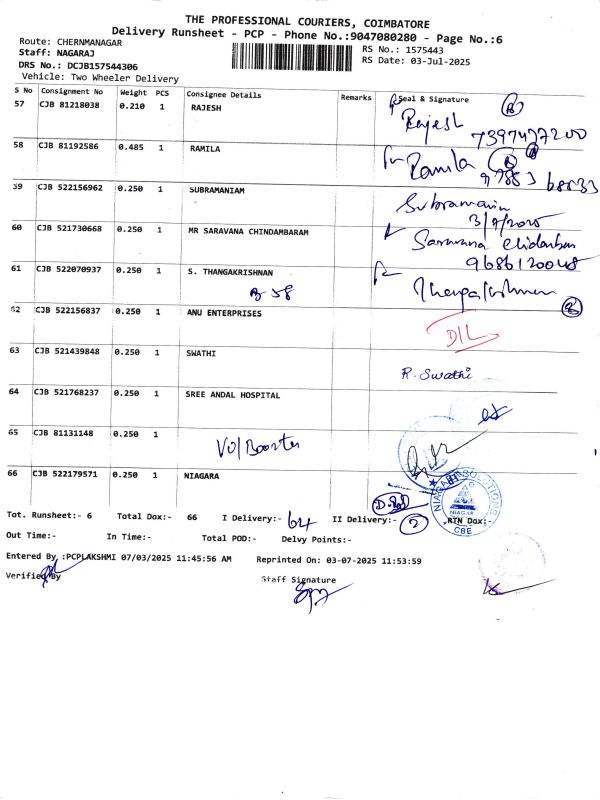 THE PROFESSIONAL COURIERS, COIMBATORE
Delivery Runsheet - PCP - Phone No.:9047080280 - Page No.:6
Route: CHERNMANAGAR
RS No.: 1575443
Staff: NAGARAJ
RS Date: 03-Jul-2025
DRS No.: DCJB157544306
Vehicle: Two Wheeler Delivery
S No Consignment No Weight PCS Consignee Details Remarks Seal & Signature
57 CJB 81218038 0.210 1 RAJESH Rajesh
58 CJB 81192586 0.485 1 RAMILA Ramila
59 CJB 522156962 0.250 1 SUBRAMANIAM
3/7/2025
60 CJB 521730668 0.250 1 MR SARAVANA CHINDAMBARAM Saravana
9686120048
61 CJB 522070937 0.250 1 S. THANGAKRISHNAN
B 58
62 CJB 522156837 0.250 1 ANU ENTERPRISES D/L
63 CJB 521439848 0.250 1 SWATHI R. Swathi
64 CJB 521768237 0.250 1 SREE ANDAL HOSPITAL
65 CJB 81131148 0.250 1
66 CJB 522179571 0.250 1 NIAGARA
NIAGARA SOLUTIONS
NIAGAR
CBE
Tot. Runsheet:- 6 Total Dox:- 66 I Delivery:- 64 II Delivery:- 2 RTN Dox:-
Out Time:- In Time:- Total POD:- Delvy Points:-
Entered By :PCPLAKSHMI 07/03/2025 11:45:56 AM Reprinted On: 03-07-2025 11:53:59
Verified By Staff Signature